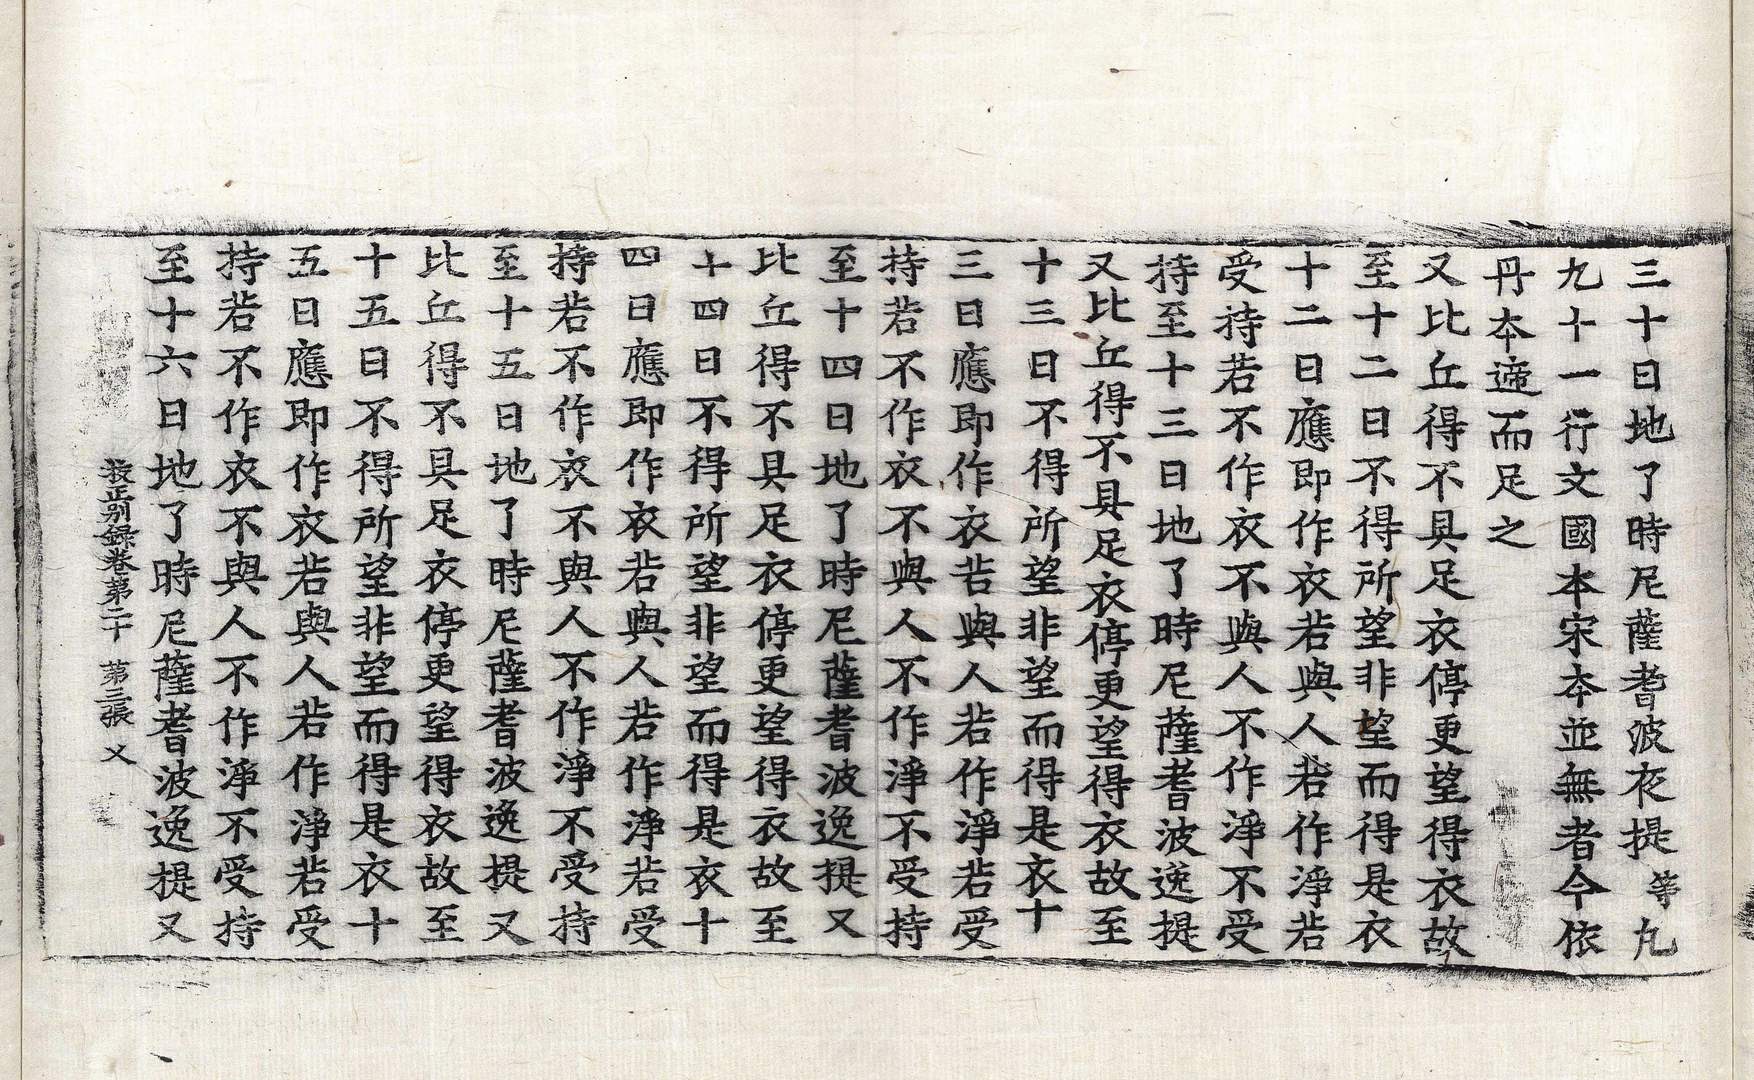 三十日地了時尼薩耆波夜提等九
九十一行文國本宋本並無者今依
丹本遆而足之
又比丘得不具足衣停更望得衣故
至十二日不得所望非望而得是衣
十二日應即作衣若與人若作淨若
受持若不作衣不與人不作淨不受
持至十三日地了時尼薩耆波逸提
又比丘得不具足衣停更望得衣故至
十三日不得所望非望而得是衣十
三日應即作衣若與人若作淨若受
持若不作衣不與人不作淨不受持
至十四日地了時尼薩耆波逸提又
比丘得不具足衣停更望得衣故至
十四日不得所望非望而得是衣十
四日應即作衣若與人若作淨若受
持若不作衣不與人不作淨不受持
至十五日地了時尼薩耆波逸提又
比丘得不具足衣停更望得衣故至
十五日不得所望非望而得是衣十
五日應即作衣若與人若作淨若受
持若不作衣不與人不作淨不受持
至十六日地了時尼薩耆波逸提又
挍正别録卷第二十 第三張 乂